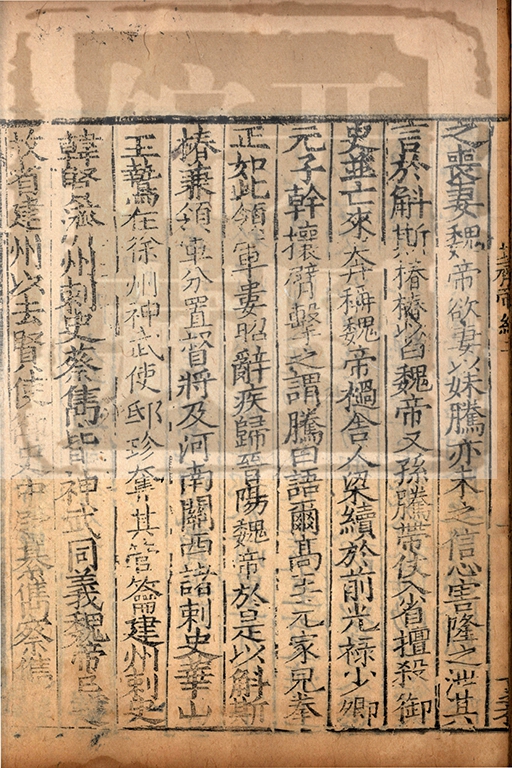 之喪妻魏帝欲妻以妹騰亦未之信心害隆之泄其
言於斛斯椿椿以白魏帝又孫騰帶仗入省擅殺御
史並亡來奔稱魏帝撾舍人梁續於前光祿少卿
元子幹攘臂擊之謂騰曰語爾高王元家兒拳
正如此領軍婁昭辭疾歸晉陽魏帝於是以斛斯
椿兼領軍分置督將及河南關西諸刺史華山
王鷙在徐州神武使邸珍奪其管籥建州刺史
韓賢濟州刺史蔡儁皆神武同義魏帝忌之
故省建州以去賢使御史中尉綦儁察儁